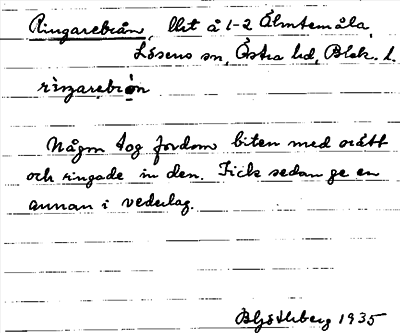 Ringarebrån, lht å 1-2 Älmtemåla,
Lösens sn, Östra hd, Blek. l.
ringarebrǫn
Någon tog fordom biten med orätt
och ringade in den. Fick sedan ge en
annan i vederlag.
1935